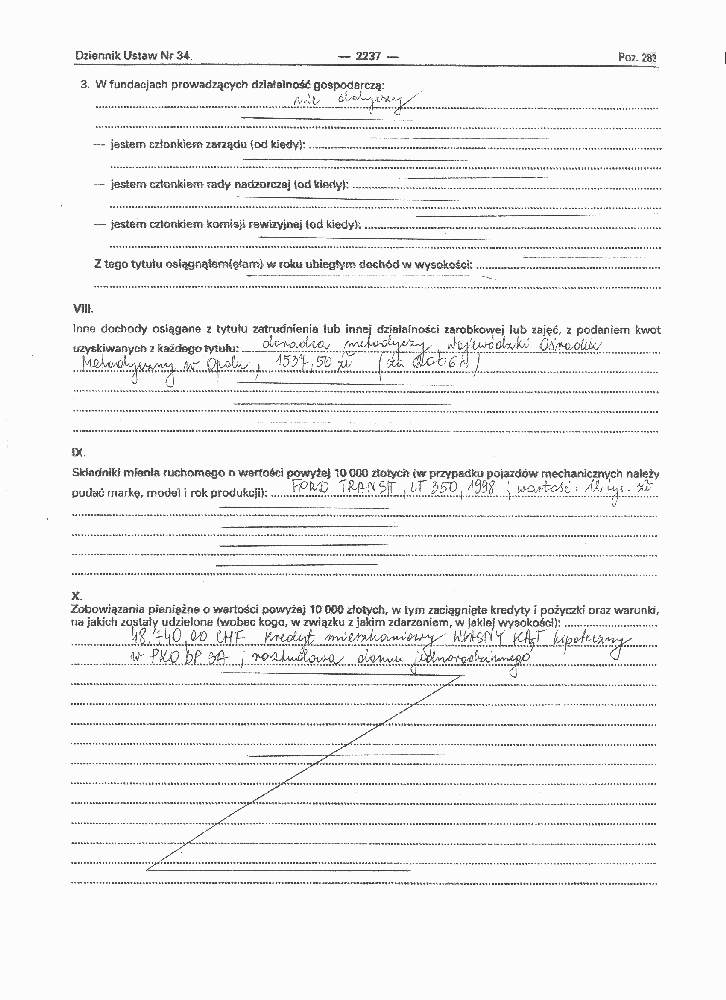 Dziennik Ustaw Nr 34.
— 2237 —
Poz. 282
3. W fundacjach prowadzących działalność gospodarczą:
nie dotyczy
— jestem członkiem zarządu (od kiedy):
— jestem członkiem rady nadzorczej (od kiedy):
— jestem członkiem komisji rewizyjnej (od kiedy):
Z tego tytułu osiągnąłem(ęłam) w roku ubiegłym dochód w wysokości:
VIII.
Inne dochody osiągane z tytułu zatrudnienia lub innej działalności zarobkowej lub zajęć, z podaniem kwot
uzyskiwanych z każdego tytułu: doradca metodyczny Wojewódzki Ośrodek
Metodyczny w Opolu, 1537,50 zł (za
IX.
Składniki mienia ruchomego o wartości powyżej 10 000 złotych (w przypadku pojazdów mechanicznych należy
podać markę, model i rok produkcji): FORD TRANSIT, LT 350, 1998 ; wartość: tyś. zł
X.
Zobowiązania pieniężne o wartości powyżej 10 000 złotych, w tym zaciągnięte kredyty i pożyczki oraz warunki,
na jakich zostały udzielone (wobec kogo, w związku z jakim zdarzeniem, w jakiej wysokości):
CHF Kredyt mieszkaniowy WŁASNY KĄT hipoteczny
w PKO BP SA ; rozbudowa domu jednorodzinnego